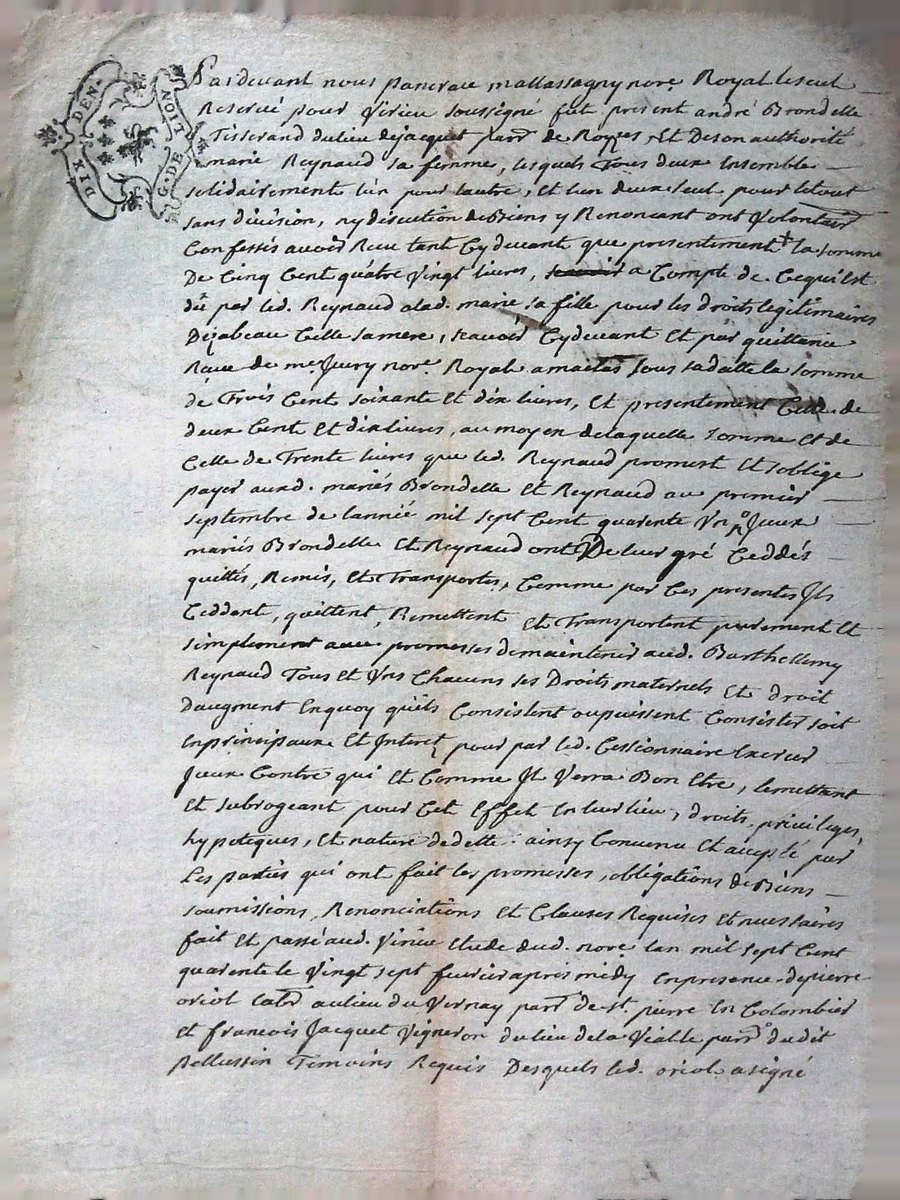 DIX DEN.
NOIT
G. DE
Pardevant nous pancrace mallassagny nore. Royal le seul
Reservé pour Virieu soussigné fut present andré Brondelle
Tisserand du lieu de jacquet parr. de Royzes, Et De son authorité
marie Reynaud sa femme, lesquels Tous deux Ensemble
solidairement l'un pour lautre, Et lun deux seul pour le tout
sans division, ny discution de Biens y Renoncant ont Volontair
Confessés avoir Receu tant Cydevant que presentement + la somme
De Cinq Cent quatre Vingt livres, a Compte de Cequi Est
dû par led. Reynaud alad. marie sa fille pour les droits legitimaires
Dejabeau Celle sa mere, scavoir Cydevant Et par quittance
Receue de me. Jury nore. Royal a maclas sous sa datte la somme
de Trois Cent soixante Et dix livres, Et presentement Celle de
deux Cent Et dix livres, au moyen de laquelle somme et de
Celle de Trente livres que led. Reynaud promest Et soblige
payer auxd. mariés Brondelle Et Reynaud au premier
septembre de lannée mil sept Cent quarente Un Jceux
mariés Brondelle Et Reynaud ont De leur gré Ceddés
quittés, Remis, Et Transportés, Comme par Ces presentes Jls
Ceddent, quittent, Remettent Et Transportent purement Et
simplement avec promesses de maintenir aud. Barthellemy
Reynaud Tous Et Uns Chacuns ses Droits maternels Et droit
Daugment En quoy quils Consistent ou puissent Consister soit
En principaux Et Interet pour par led. Cessionnaire Exercer
Jceux Contre qui Et Comme Jl Verra Bon Etre, le mettant
Et subrogeant pour Cet Effet En leur lieu, droits, privileges,
hypoteques, Et nature de dette. ainsy Convenu Et accepté par
Les parties qui ont fait les promesses, obligations de Biens
soumissions, Renonciations Et Clauses Requises Et necessaires
fait Et passé aud. Virieu Etude dud. nore. lan mil sept Cent
quarente le Vingt sept fevrier apres midy En presence de pierre
oriol labr au lieu du Vernay parr. de st. pierre En Colombier
Et francois Jacquet Vigneron du lieu de la Vialle parr. du dit
pellussin Temoins Requis Desquels led. oriol a signé